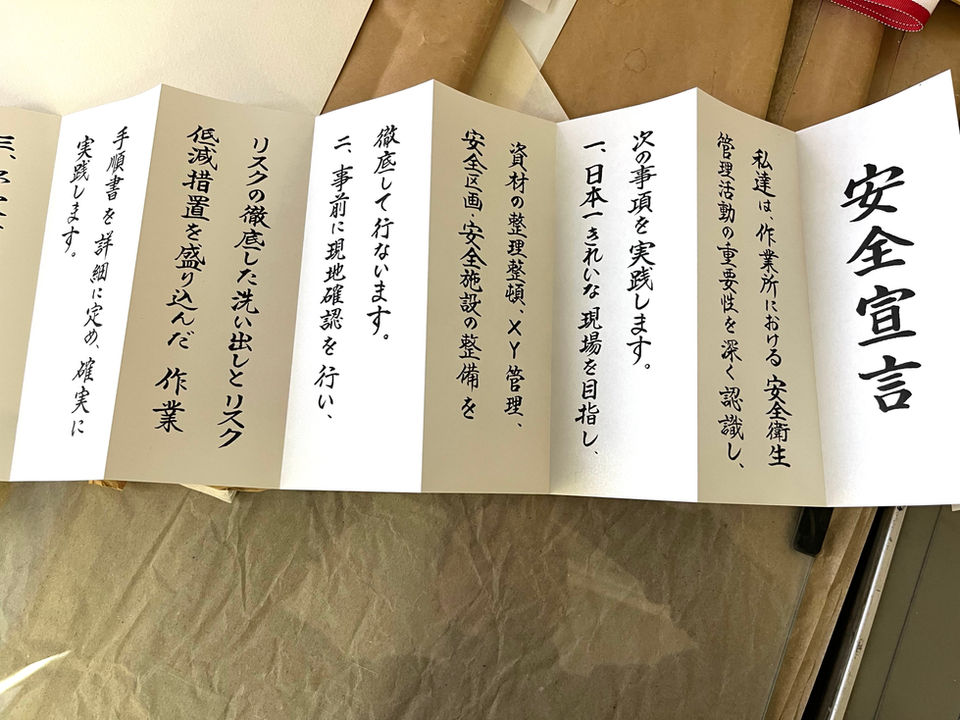 安全宣言
私達は、作業所における安全衛生
管理活動の重要性を深く認識し、
次の事項を実践します。
一、日本一きれいな現場を目指し、
資材の整理整頓、XY管理、
安全区画・安全施設の整備を
徹底して行ないます。
二、事前に現地確認を行い、
リスクの徹底した洗い出しとリスク
低減措置を盛り込んだ作業
手順書を詳細に定め、確実に
実践します。
三、